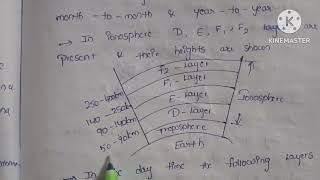 month - to - month & year - to - year
→ In Ionosphere D, E, F1, F2 layer are
Present & their heights are shown
F2 - Layer
250-400km
F1 - Layer
140-250km
E - Layer
Ionosphere
90-140km
D - Layer
50-90km
Troposphere
Earth
→ In day time the following layers
KINEMASTER